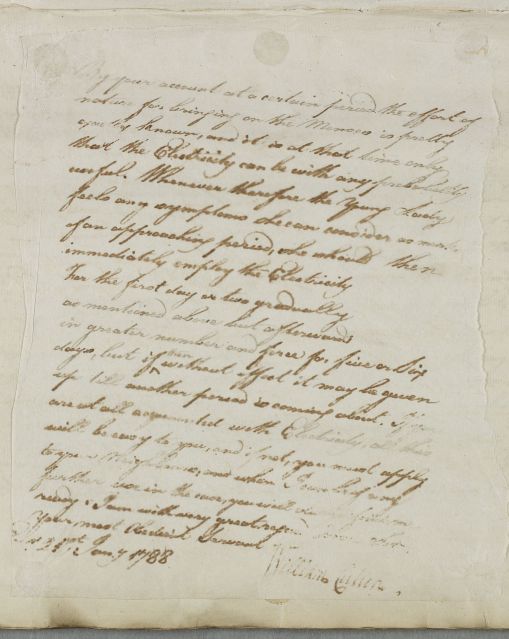 By your account at a certain period the effort of
nature for bringing on the Menses is pretty
exactly known, and it is at that time only
that the Electricity can be with any probability
useful. Whenever therefore the Young Lady
feels any symptoms she can consider as marks
of an approaching period, she should then
immediately employ the Electricity
For the first day or two gradually
as mentioned above but afterwards
in greater number and force for five or Six
days, but if then without effect it may be given
up till another period is coming about. If you
are at all acquainted with Electricity, all this
will be easy to you, and if not, you must apply
to your Neighbours, and when I can be of any
further use in the case, you will find me
ready. I am with very great regard
Your most Obedient Servant
21st Jany 1788
William Cullen